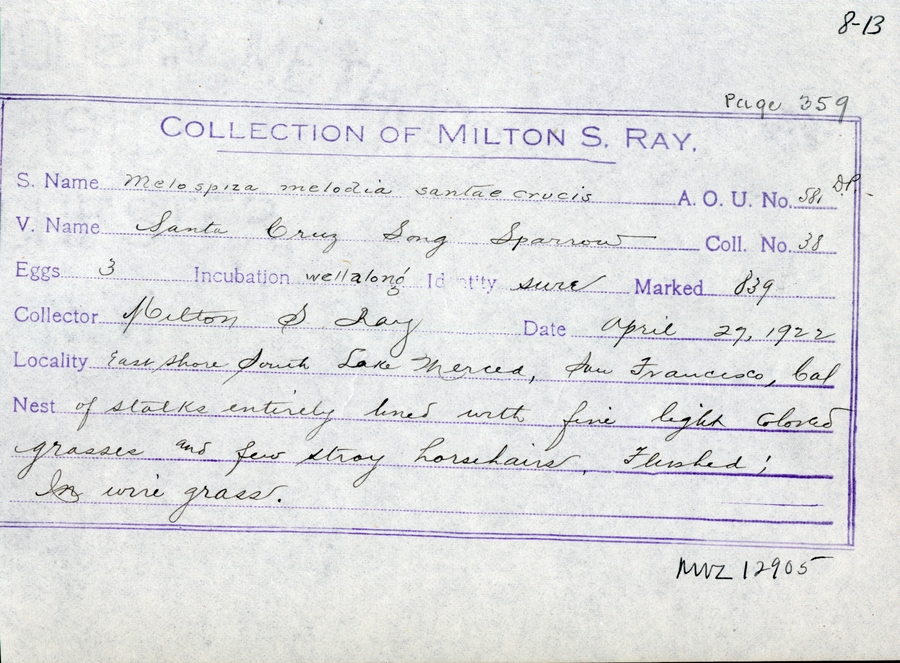 8-13
Page 359
COLLECTION OF MILTON S. RAY.
S. Name Melospiza melodia santae crucis A. O. U. No. 581
V. Name Santa Cruz Song Sparrow Coll. No. 38
Eggs 3 Incubation well along Identity sure Marked 839
Collector Milton S Ray Date April 27, 1922
Locality East shore South Lake Merced, San Francisco, Cal
Nest of stalks entirely lined with fine light colored
grasses and few stray horsehairs. Flushed;
In wire grass.
MVZ 12905